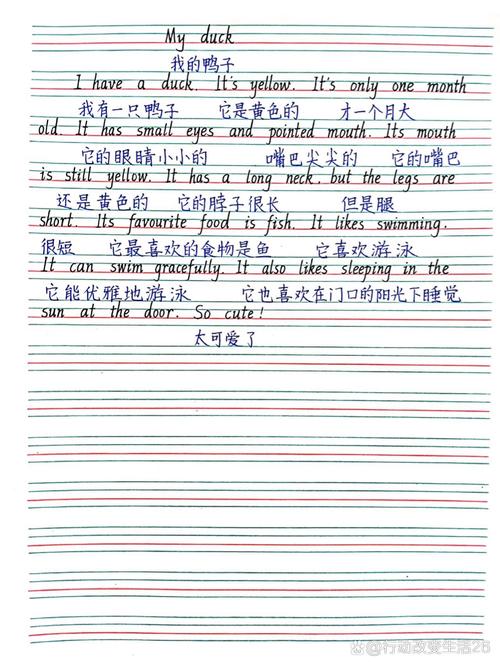 My duck
我的鸭子
I have a duck. It's yellow. It's only one month
我有一只鸭子 它是黄色的 才一个月大
old. It has small eyes and pointed mouth. Its mouth
它的眼睛小小的 嘴巴尖尖的 它的嘴巴
is still yellow. It has a long neck, but the legs are
还是黄色的 它的脖子很长 但是腿
short. Its favourite food is fish. It likes swimming.
很短 它最喜欢的食物是鱼 它喜欢游泳
It can swim gracefully. It also likes sleeping in the
它能优雅地游泳 它也喜欢在门口的阳光下睡觉
sun at the door. So cute!
太可爱了
@行动改变生活26